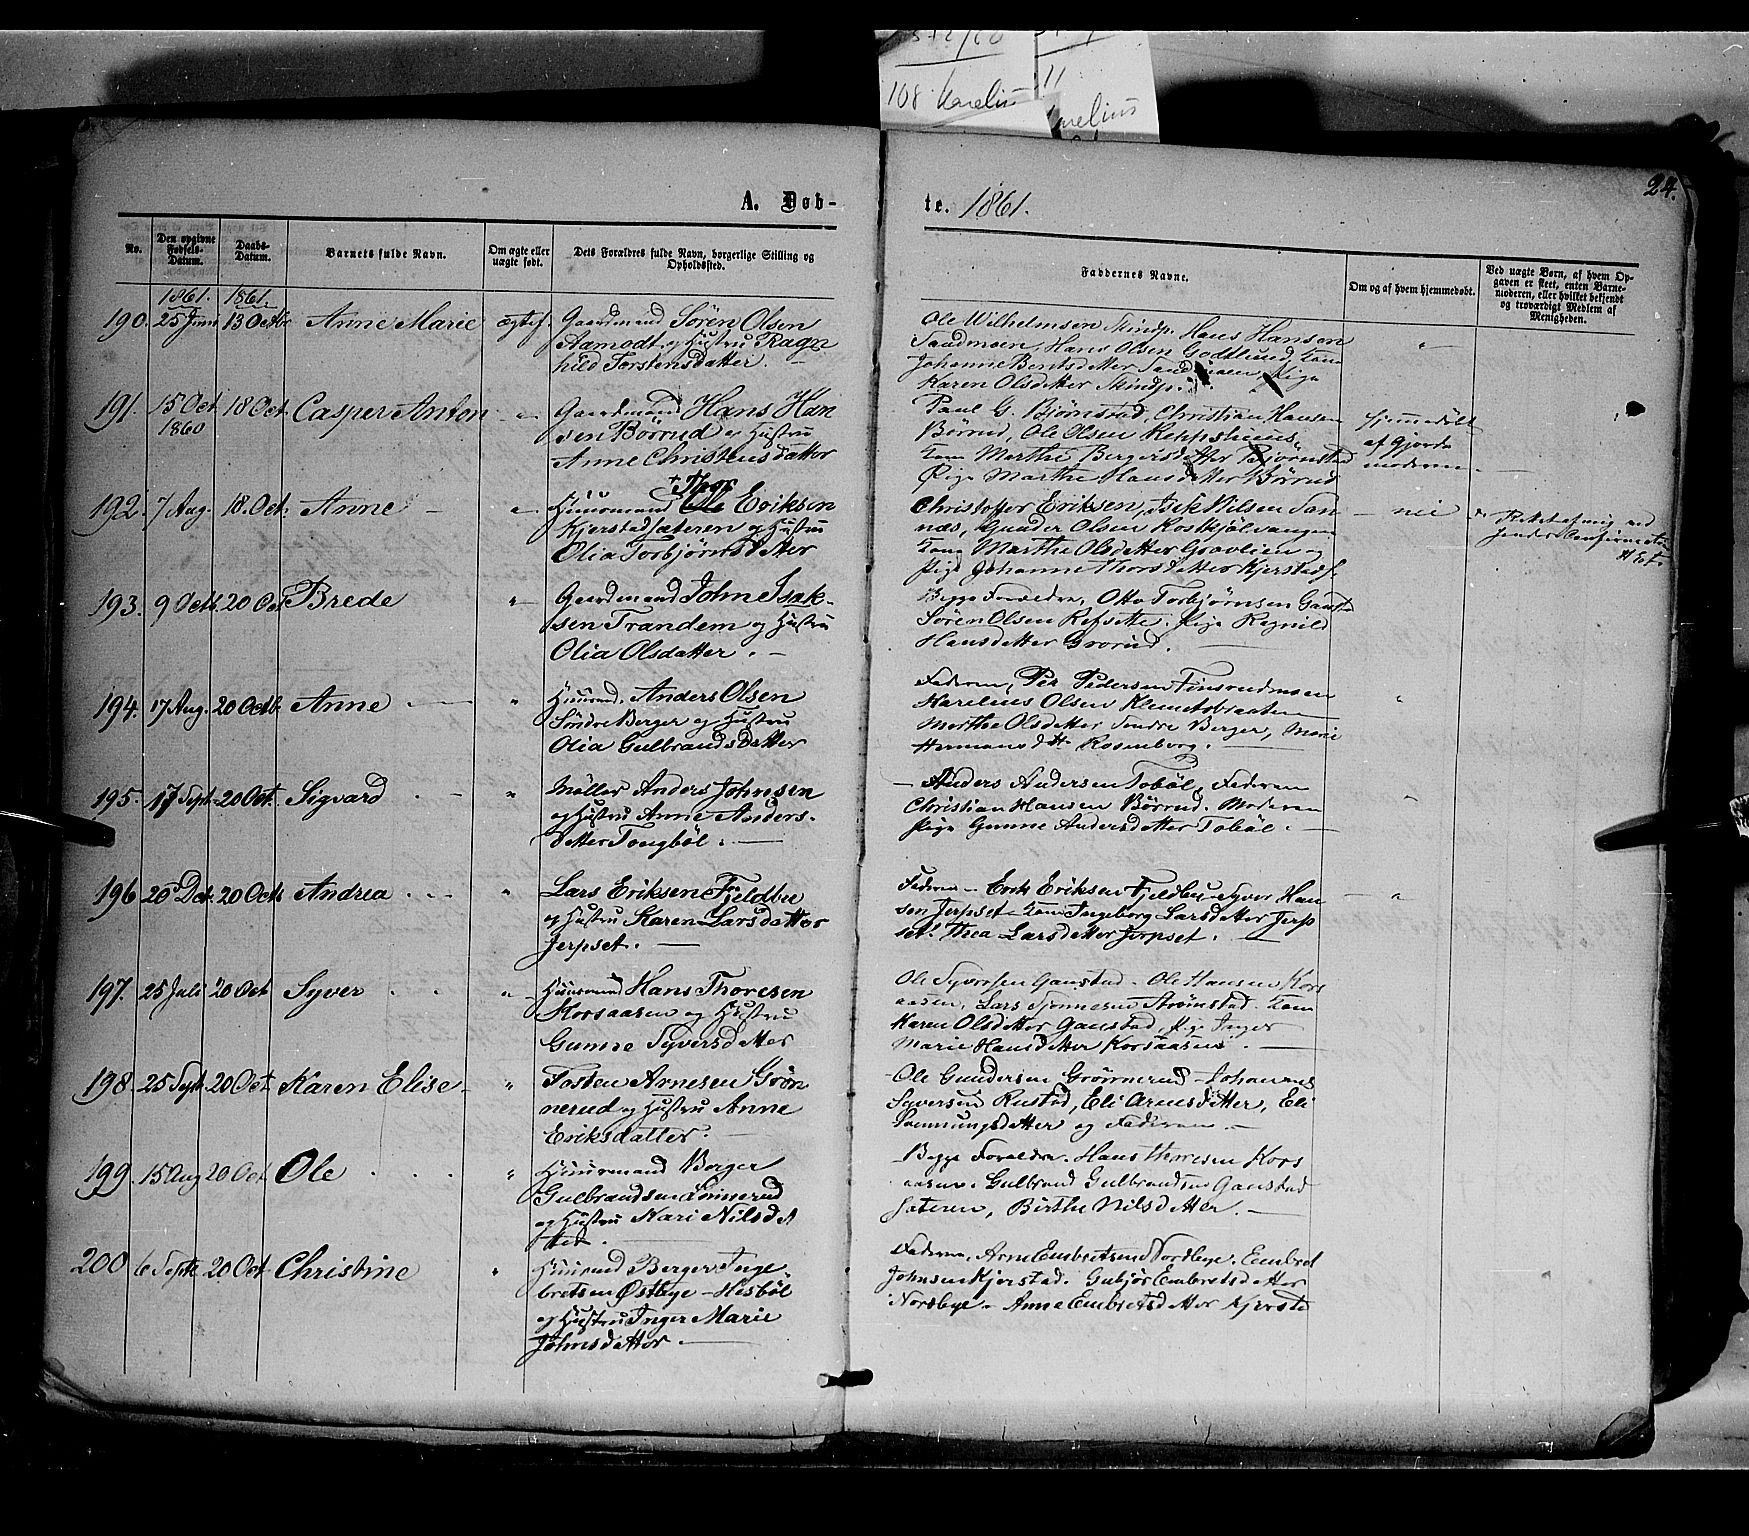 108 Karelius 11
A. Døb-
te. 1861.
24.
No.
Den opgivne Fødsels-Datum.
Daabs-Datum.
Barnets fulde Navn.
Om ægte eller uægte født.
Dets Forældres fulde Navn, borgerlige Stilling og Opholdssted.
Faddernes Navne.
Om og af hvem hjemmedøbt.
Ved uægte Børn, af hvem Op-
gaven er skeet, enten Barne-
moderen, eller hvilket bekjendt
og troværdigt Medlem af
Menigheden.
1861. 1861.
190. 25 Juni 13 Octbr Anne Marie ægtef. Gaardmand Sören Olsen
Aamodt og Hustru Ragn
hild Torstensdatter.
Ole Wilhelmsen Hans Hansen
Sandmoen, Hans Olsen Godtlund, Kone
Johanne Berntsdatter Sandmoen, Pige
Karen Olsdatter
191. 15 Oct. 18 Oct. Casper Anton " Gaardmand Hans Han
1860
sen Börrud og Hustru
Anne Christensdatter
Paul G. Björnstad, Christian Hansen
Börrud, Ole Olsen Reppshuus,
Kone Marthe Bergersdatter Björnstad
Pige Marthe Hansdatter Börrud
hjemmedöbt
af Gjorde
moderen
192. 7 Aug. 18. Oct. Anne " Huusmand Ole Eriksen
+ Thor
Kjerstadsæteren og Hustru
Olia Torbjörnsdatter
Christoffer Eriksen, Nilsen San
næs, Gunder Olsen Kostkjölvangen
Kone Marthe Olsdatter Gravlien og
Pige Johanne Thorsdatter Kjerstads.
nei
Rettet af mig ved
193. 9 Octb. 20 Oct. Brede " Gaardmand John Isak-
sen Trandem og Hustru
Olia Olsdatter.
Begge Forældre, Otto Torbjörnsen Ganstad
Sören Olsen Pige Ragnild
Hansdatter Grorud.
194. 17 Aug. 20 Octb. Anne " Huusmd. Anders Olsen
Söndre Berger og Hustru
Olia Gulbrandsdatter
Faderen, Per Pedersen Finsrudmoen
Karelius Olsen Klemetsbraaten
Marthe Olsdatter Söndre Berger, Marie
Hermansdtr Rosenborg.
195. 17 Sept. 20 Oct. Sigvard " Møller Anders Johnsen
og Hustru Anne Anders-
datter Tougböl.
Anders Andersen Toböl, Faderen
Christian Hansen Börrud. Moderen
Pige Gunne Andersdatter Toböl.
196 20 Oct. 20 Octb Andrea " Lars Eriksen Fjeldbu
og Hustru Karen Larsdatter
Jerpset.
Faderen - Erik Eriksen Fjeldbu - Syver Han
sen Jerpset - Kone Ingeborg Larsdatter Jerp
set. Thea Larsdatter Jerpset.
197. 25 Juli 20 Oct Syver " Huusmand Hans Thoresen
Korsaasen og Hustru
Gunne Syversdatter
Ole Syversen Ganstad - Ole Hansen Kors
aasen, Lars Strömstad - Kone
Karen Olsdatter Ganstad, Pige Inger
Marie Hansdatter Korsaasen.
198. 25 Sept. 20 Oct. Karen Elise " Tosten Arnesen Grön
nerud og Hustru Anne
Eriksdatter.
Ole Gundersen Grönnerud - Johannes
Syversen Rustad, Eli Arnesdatter, Eli
Svenningsdatter og Faderen.
199. 15 Aug 20 Oct. Ole " Huusmand Berger
Gulbrandsen Linnerud
og Hustru Kari Nilsdat
ter.
Begge Forældre. Hans Thoresen Kors
aasen. Gulbrand Gulbrandsen Ganstad
sæteren, Birthe Nilsdatter.
200 6 Septb 20 Oct. Christine " Huusmd Berger Enge
bretsen Østbye - Hesböl
og Hustru Inger Marie
Johnsdatter.
Faderen, Arne Embretsen Nordbye. Embret
Johnsen Kjerstad. Gubjör Embretsdatter
Nordbye - Anne Embretsdatter Kjersta